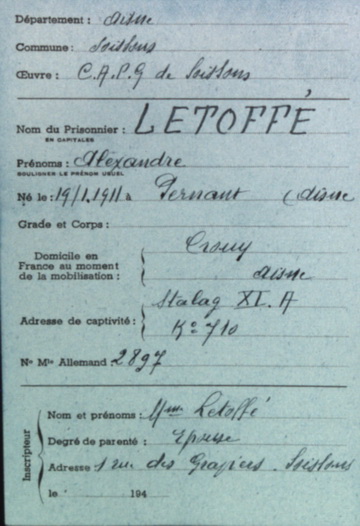 Département : Aisne
Commune : Soissons
Œuvre : C.A.P.G de Soissons
Nom du Prisonnier : LETOFFÉ
EN CAPITALES
Prénoms : Aléxandre
SOULIGNER LE PRÉNOM USUEL
Né le : 19/1.1911 à Pernant (Aisne
Grade et Corps :
Domicile en
France au moment
de la mobilisation :
Crouy
Aisne
Adresse de captivité :
Stalag XI. A
Kº 710
Nº Mle Allemand : 2897
Inscripteur
Nom et prénoms : Mme Letoffé
Degré de parenté : Epouse
Adresse 1 rue des Soissons
le 194